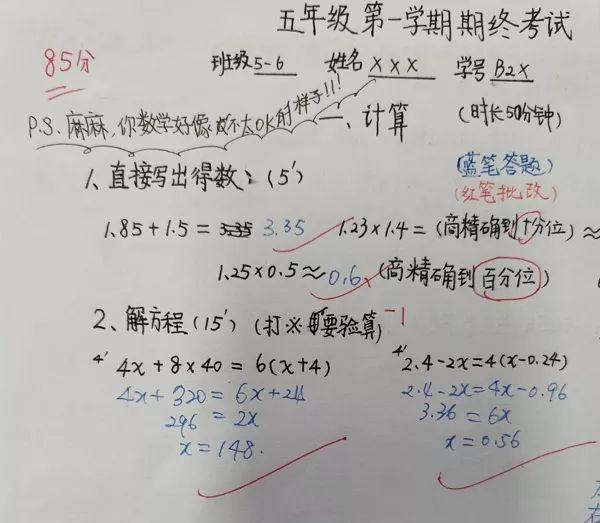 五年级第一学期期终考试
85分
班级5-6 姓名XXX 学号B2X
P.S.麻麻,你数学好像也不太OK的样子!!!
一、计算 (时长50分钟)
1、直接写出得数:(5′)
(蓝笔答题)
(红笔批改)
1.85+1.5= 3.35 1.23×1.4=(商精确到十分位)≈
1.25×0.5≈0.6 (商精确到百分位)
2、解方程(15′)(打※要验算) -1
4′ 4x+8×40=6(x+4)
4x+320=6x+24
296=2x
x=148.
4′ 2.4-2x=4(x-0.24)
2.4-2x=4x-0.96
3.36=6x
x=0.56